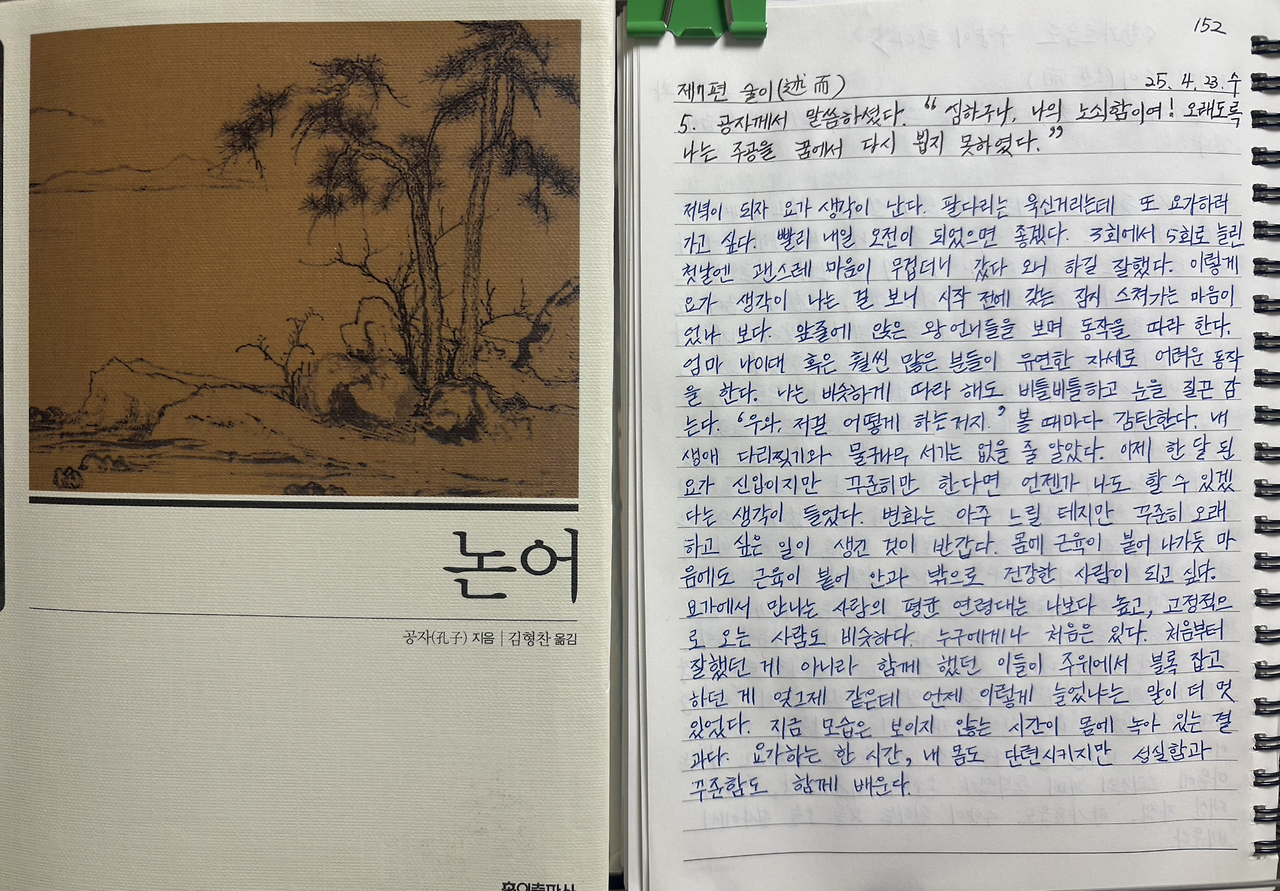 논어
공자(孔子) 지음 | 김형찬 옮김
홍익출판사
152
제7편 술이(述而) 25. 4. 23. 수
5. 공자께서 말씀하셨다. “심하구나, 나의 노쇠함이여! 오래도록
나는 주공을 꿈에서 다시 뵙지 못하였다.”
저녁이 되자 요가 생각이 난다. 팔다리는 욱신거리는데 또 요가하러
가고 싶다. 빨리 내일 오전이 되었으면 좋겠다. 3회에서 5회로 늘린
첫날엔 괜스레 마음이 무겁더니 갔다 오니 하길 잘했다. 이렇게
요가 생각이 나는 걸 보니 시작 전에 갖는 잠시 스쳐가는 마음이
었나 보다. 앞줄에 앉은 왕언니들을 보며 동작을 따라 한다.
엄마 나이대 혹은 훨씬 많은 분들이 유연한 자세로 어려운 동작
을 한다. 나는 비슷하게 따라 해도 비틀비틀하고 눈을 질끈 감
는다. ‘우와, 저걸 어떻게 하는거지.’ 볼 때마다 감탄한다. 내
생애 다리찢기와 물구나무 서기는 없을 줄 알았다. 이제 한 달 된
요가 신입이지만 꾸준히만 한다면 언젠가 나도 할 수 있겠
다는 생각이 들었다. 변화는 아주 느릴 테지만 꾸준히 오래
하고 싶은 일이 생긴 것이 반갑다. 몸에 근육이 붙어 나가듯 마
음에도 근육이 붙어 안과 밖으로 건강한 사람이 되고 싶다.
요가에서 만나는 사람의 평균 연령대는 나보다 높고, 고정적으
로 오는 사람도 비슷하다. 누구에게나 처음은 있다. 처음부터
잘했던 게 아니라 함께 했던 이들이 주위에서 블록 잡고
하던 게 엊그제 같은데 언제 이렇게 늘었냐는 말이 더 멋
있었다. 지금 모습은 보이지 않는 시간이 몸에 녹아 있는 결
과다. 요가하는 한 시간, 내 몸도 단련시키지만 성실함과
꾸준함도 함께 배운다.